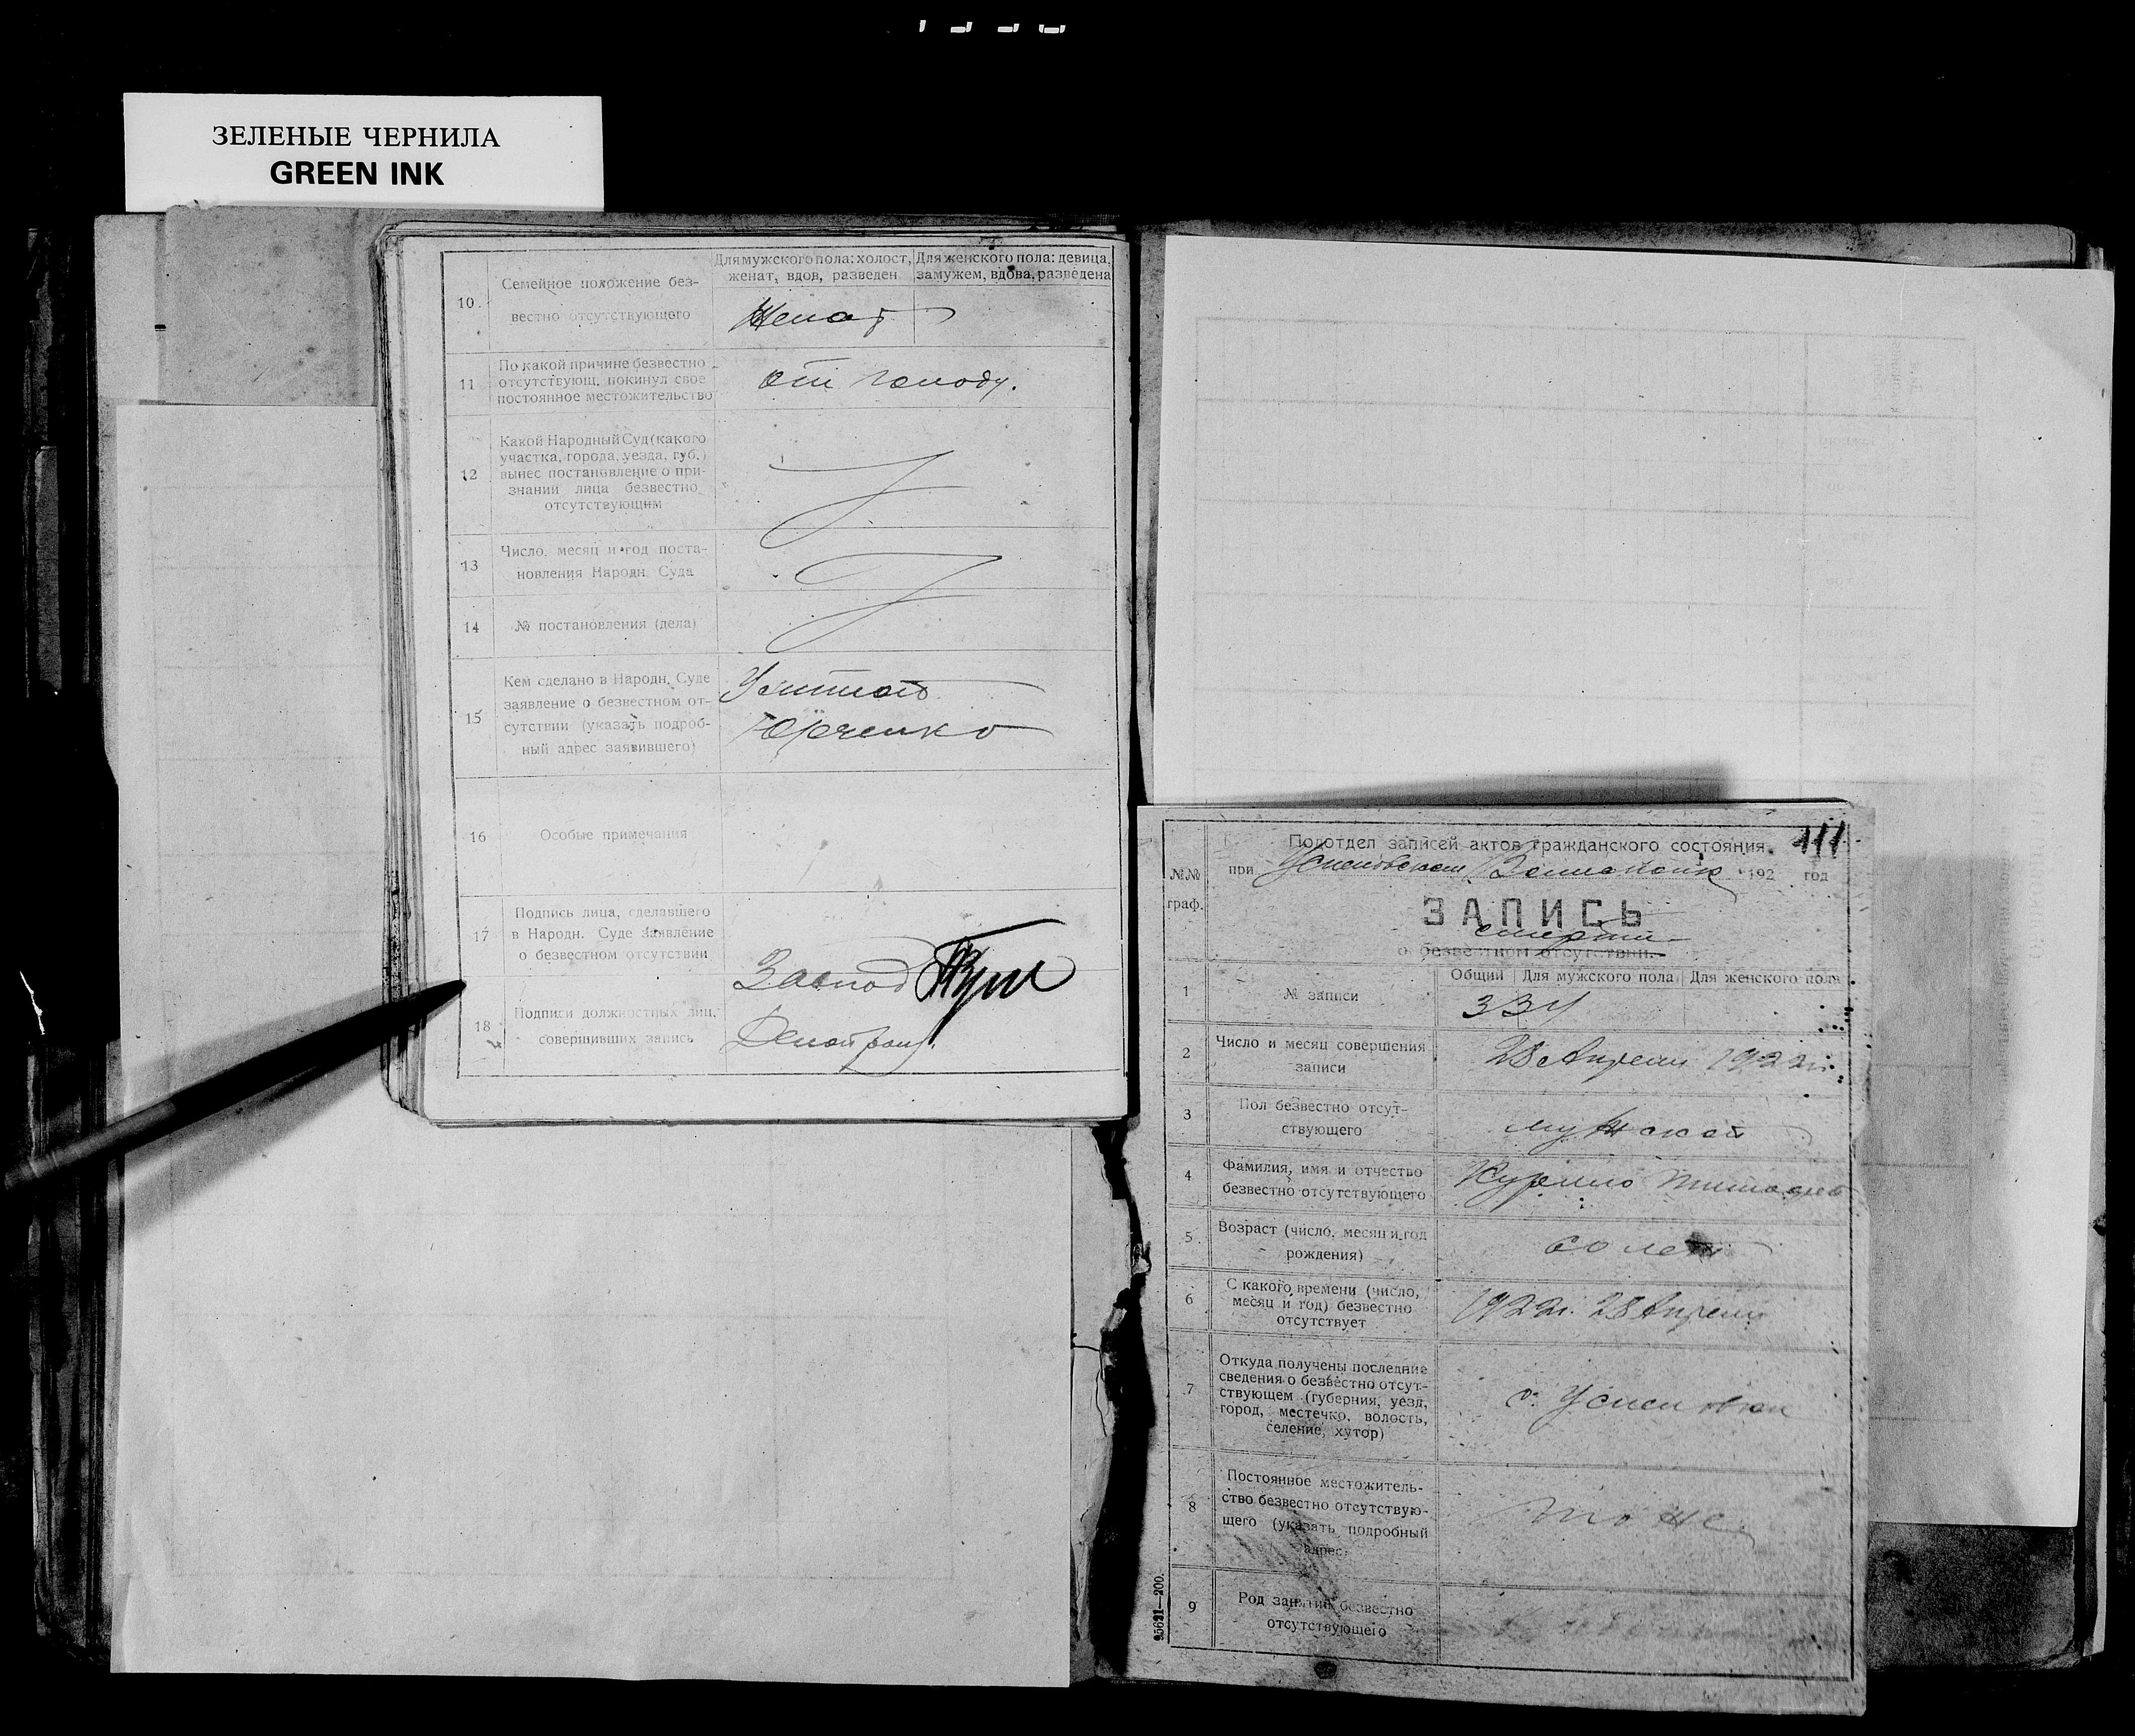 ЗЕЛЕНЫЕ ЧЕРНИЛА
GREEN INK
10
Семейное положение без-
вестно отсутствующего
Для мужского пола: холост,
женат, вдов, разведен
Для женского пола: девица,
замужем, вдова, разведена
Женат
11
По какой причине безвестно
отсутствующ. покинул свое
постоянное местожительство
от голоду.
12
Какой Народный Суд (какого
участка, города, уезда, губ.)
вынес постановление о при-
знании лица безвестно
отсутствующим
13
Число, месяц и год поста-
новления Народн. Суда
14
№ постановления (дела)
15
Кем сделано в Народн. Суде
заявление о безвестном от-
сутствии (указать подроб-
ный адрес заявившего)
Юрченко
16
Особые примечания
17
Подпись лица, сделавшего
в Народн. Суде заявление
о безвестном отсутствии
18
Подписи должностных лиц,
совершивших запись
Завпод
111
№№
граф.
Подотдел записей актов гражданского состояния.
при Успеновском 192 год
ЗАПИСЬ
смерти
о безвестном отсутствии.
1
№ записи
Общий
Для мужского пола
Для женского пола
334
2
Число и месяц совершения
записи
28 Апреля 1922 г.
3
Пол безвестно отсут-
ствующего
мужской
4
Фамилия, имя и отчество
безвестно отсутствующего
Курило Тимофей
5
Возраст (число, месяц и год
рождения)
60 лет
6
С какого времени (число,
месяц и год) безвестно
отсутствует
1922 г. 28 Апреля
7
Откуда получены последние
сведения о безвестно отсут-
ствующем (губерния, уезд,
город, местечко, волость,
селение, хутор)
с. Успеновки
8
Постоянное местожитель-
ство безвестно отсутствую-
щего (указать подробный
адрес)
то же
9
Род занятий безвестно
отсутствующего
95621—200.